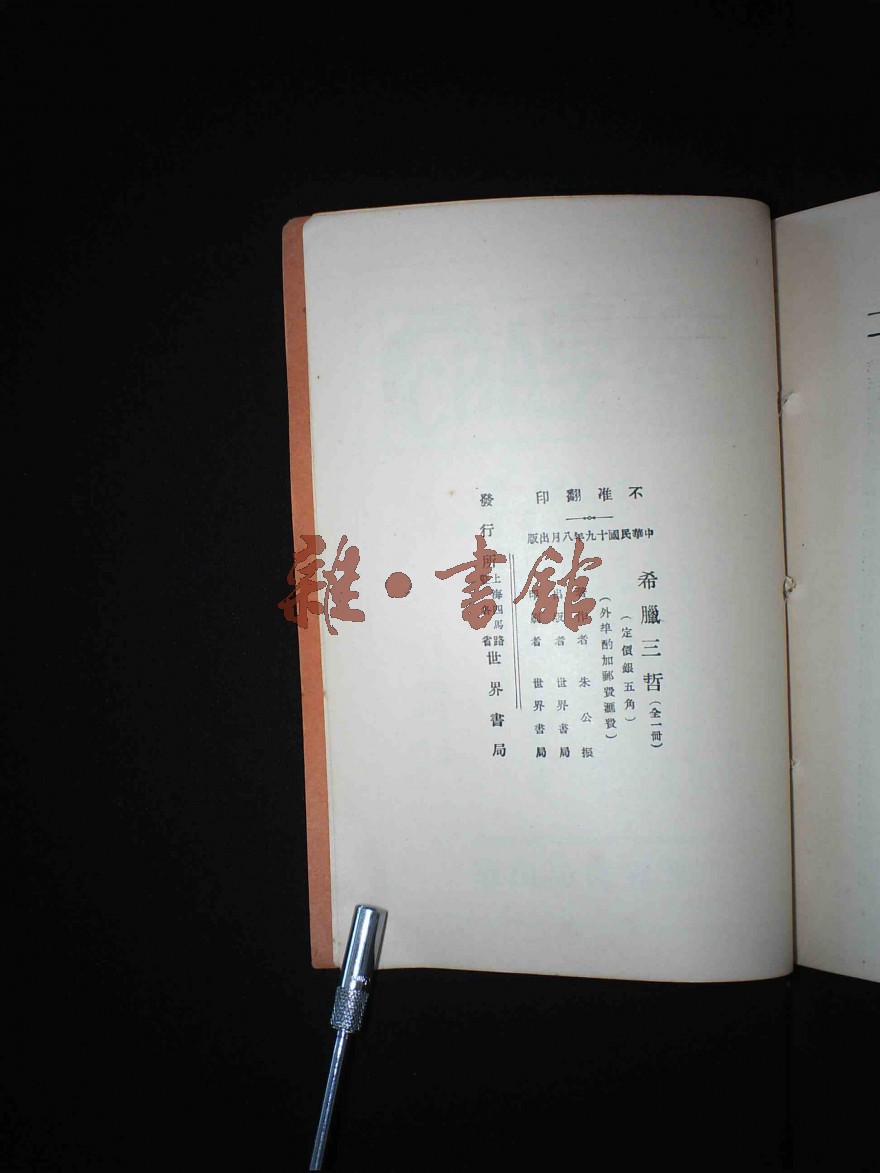 不准翻印
中華民國十九年八月出版
希臘三哲(全一冊)
(定價銀五角)
(外埠酌加郵費滙費)
著作者 朱公振
出版者 世界書局
印刷者 世界書局
發行所 上海四馬路 曁各省 世界書局
雜·書館